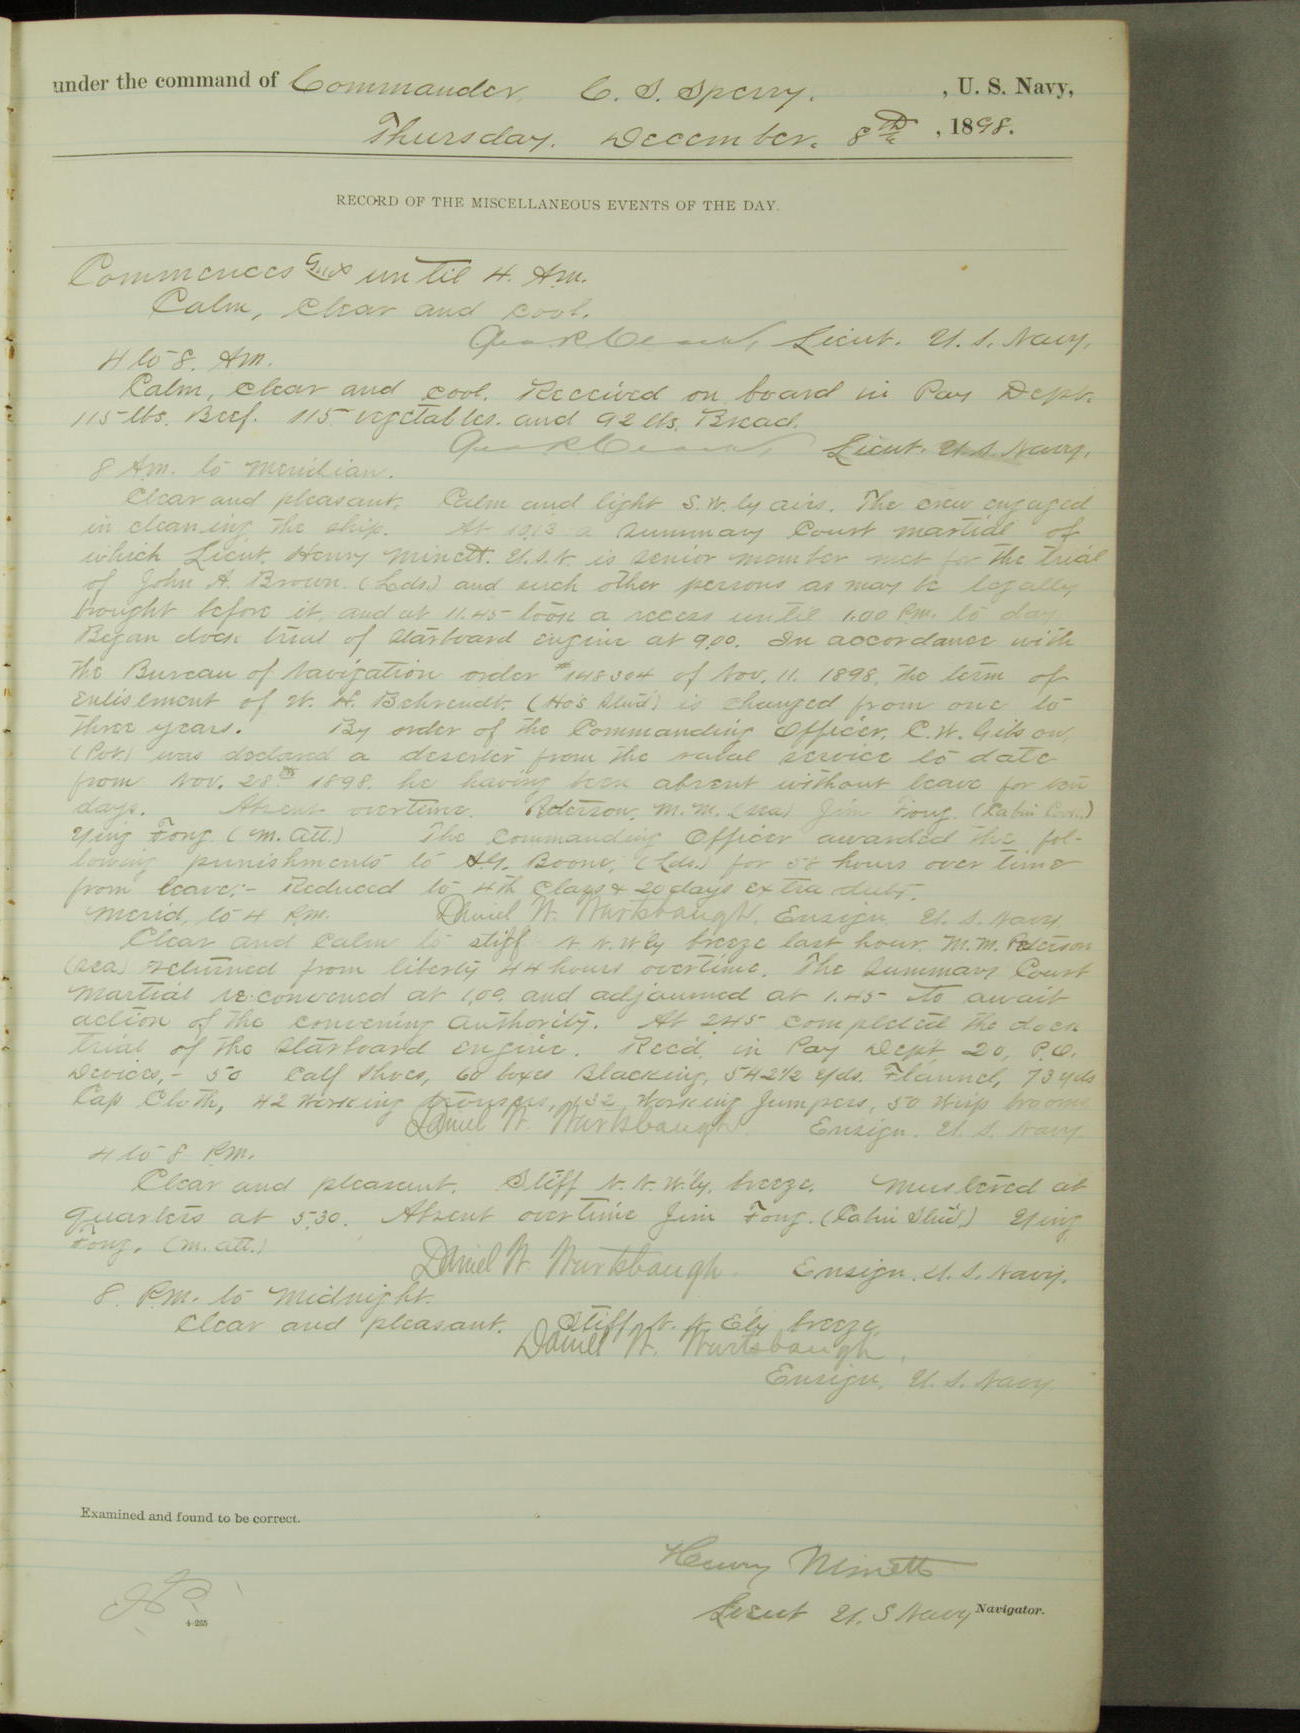 under the command of Commander C. S. Sperry. , U. S. Navy,
Thursday. December. 8th , 1898.
RECORD OF THE MISCELLANEOUS EVENTS OF THE DAY.
Commences and until 4. Am.
Calm, clear and cool.
Lieut. U. S. Navy.
4 to 8. Am.
Calm, clear and cool. Received on board in Pay Dept.
115 lbs. Beef. 115 vegetables. and 92 lbs. Bread.
Lieut. U. S. Navy.
8 Am. to Meridian.
Clear and pleasant. Calm and light S.W.ly airs. The crew engaged
in cleaning the ship. At 10.13 a Summary Court martial of
which Lieut. Henry Minett. U.S.N. is senior member met for the trial
of John A. Brown. (Lds.) and such other persons as may be legally
brought before it, and at 11.45 took a recess until 1.00 Pm. to day
Began dock trial of starboard engine at 9.00. In accordance with
the Bureau of Navigation order #148304 of Nov. 11. 1898. the term of
enlisment of W. H. Behrendt. (Hos. Stwd.) is changed from one to
three years. By order of the Commanding Officer. C. W. Gibson,
was declared a deserter from the naval service to date
from Nov. 28th 1898. he having been absent without leave for ten
days. Absent overtime. Peterson, M. M. (sea) Jim Fong. (Cabin Cook.)
Ying Fong (M. Att.) The Commanding Officer awarded the fol-
lowing punishments to Boone, (Lds.) for hours over time
from leave:- Reduced to 4th class & 20 days extra duty.
Daniel W. Wurtsbaugh. Ensign. U. S. Navy
Merid. to 4 Pm.
Clear and calm to stiff N.N.W'ly breeze last hour. M. M. Peterson
(sea) returned from liberty 44 hours overtime. The Summary Court
Martial re-convened at 1,00. and adjourned at 1.45 to await
action of the convening authority. At 2.45 completed the dock
trial of the starboard engine. Rec'd. in Pay Dep't. 20, P.O.
Devices,- 50 Calf Shoes, 60 boxes Blacking, 542 1/2 yds. Flannel, 73 yds
Cap Cloth, 42 Working trousers, 132 Working Jumpers, 50 Wisp brooms
Daniel W. Wurtsbaugh. Ensign. U. S. Navy
4 to 8 P.m.
Clear and pleasant. Stiff N.N.W'ly. breeze. Mustered at
quarters at 5.30. Absent overtime Jim Fong. (Cabin Stw'd.) Ying
Fong, (M. Att.)
Daniel W. Wurtsbaugh. Ensign. U. S. Navy.
8. P.M. to Midnight.
Clear and pleasant. Stiff N. N. E'ly breeze.
Daniel W. Wurtsbaugh.
Ensign. U. S. Navy.
Examined and found to be correct.
Henry Minett
Lieut U. S Navy Navigator.
4-265